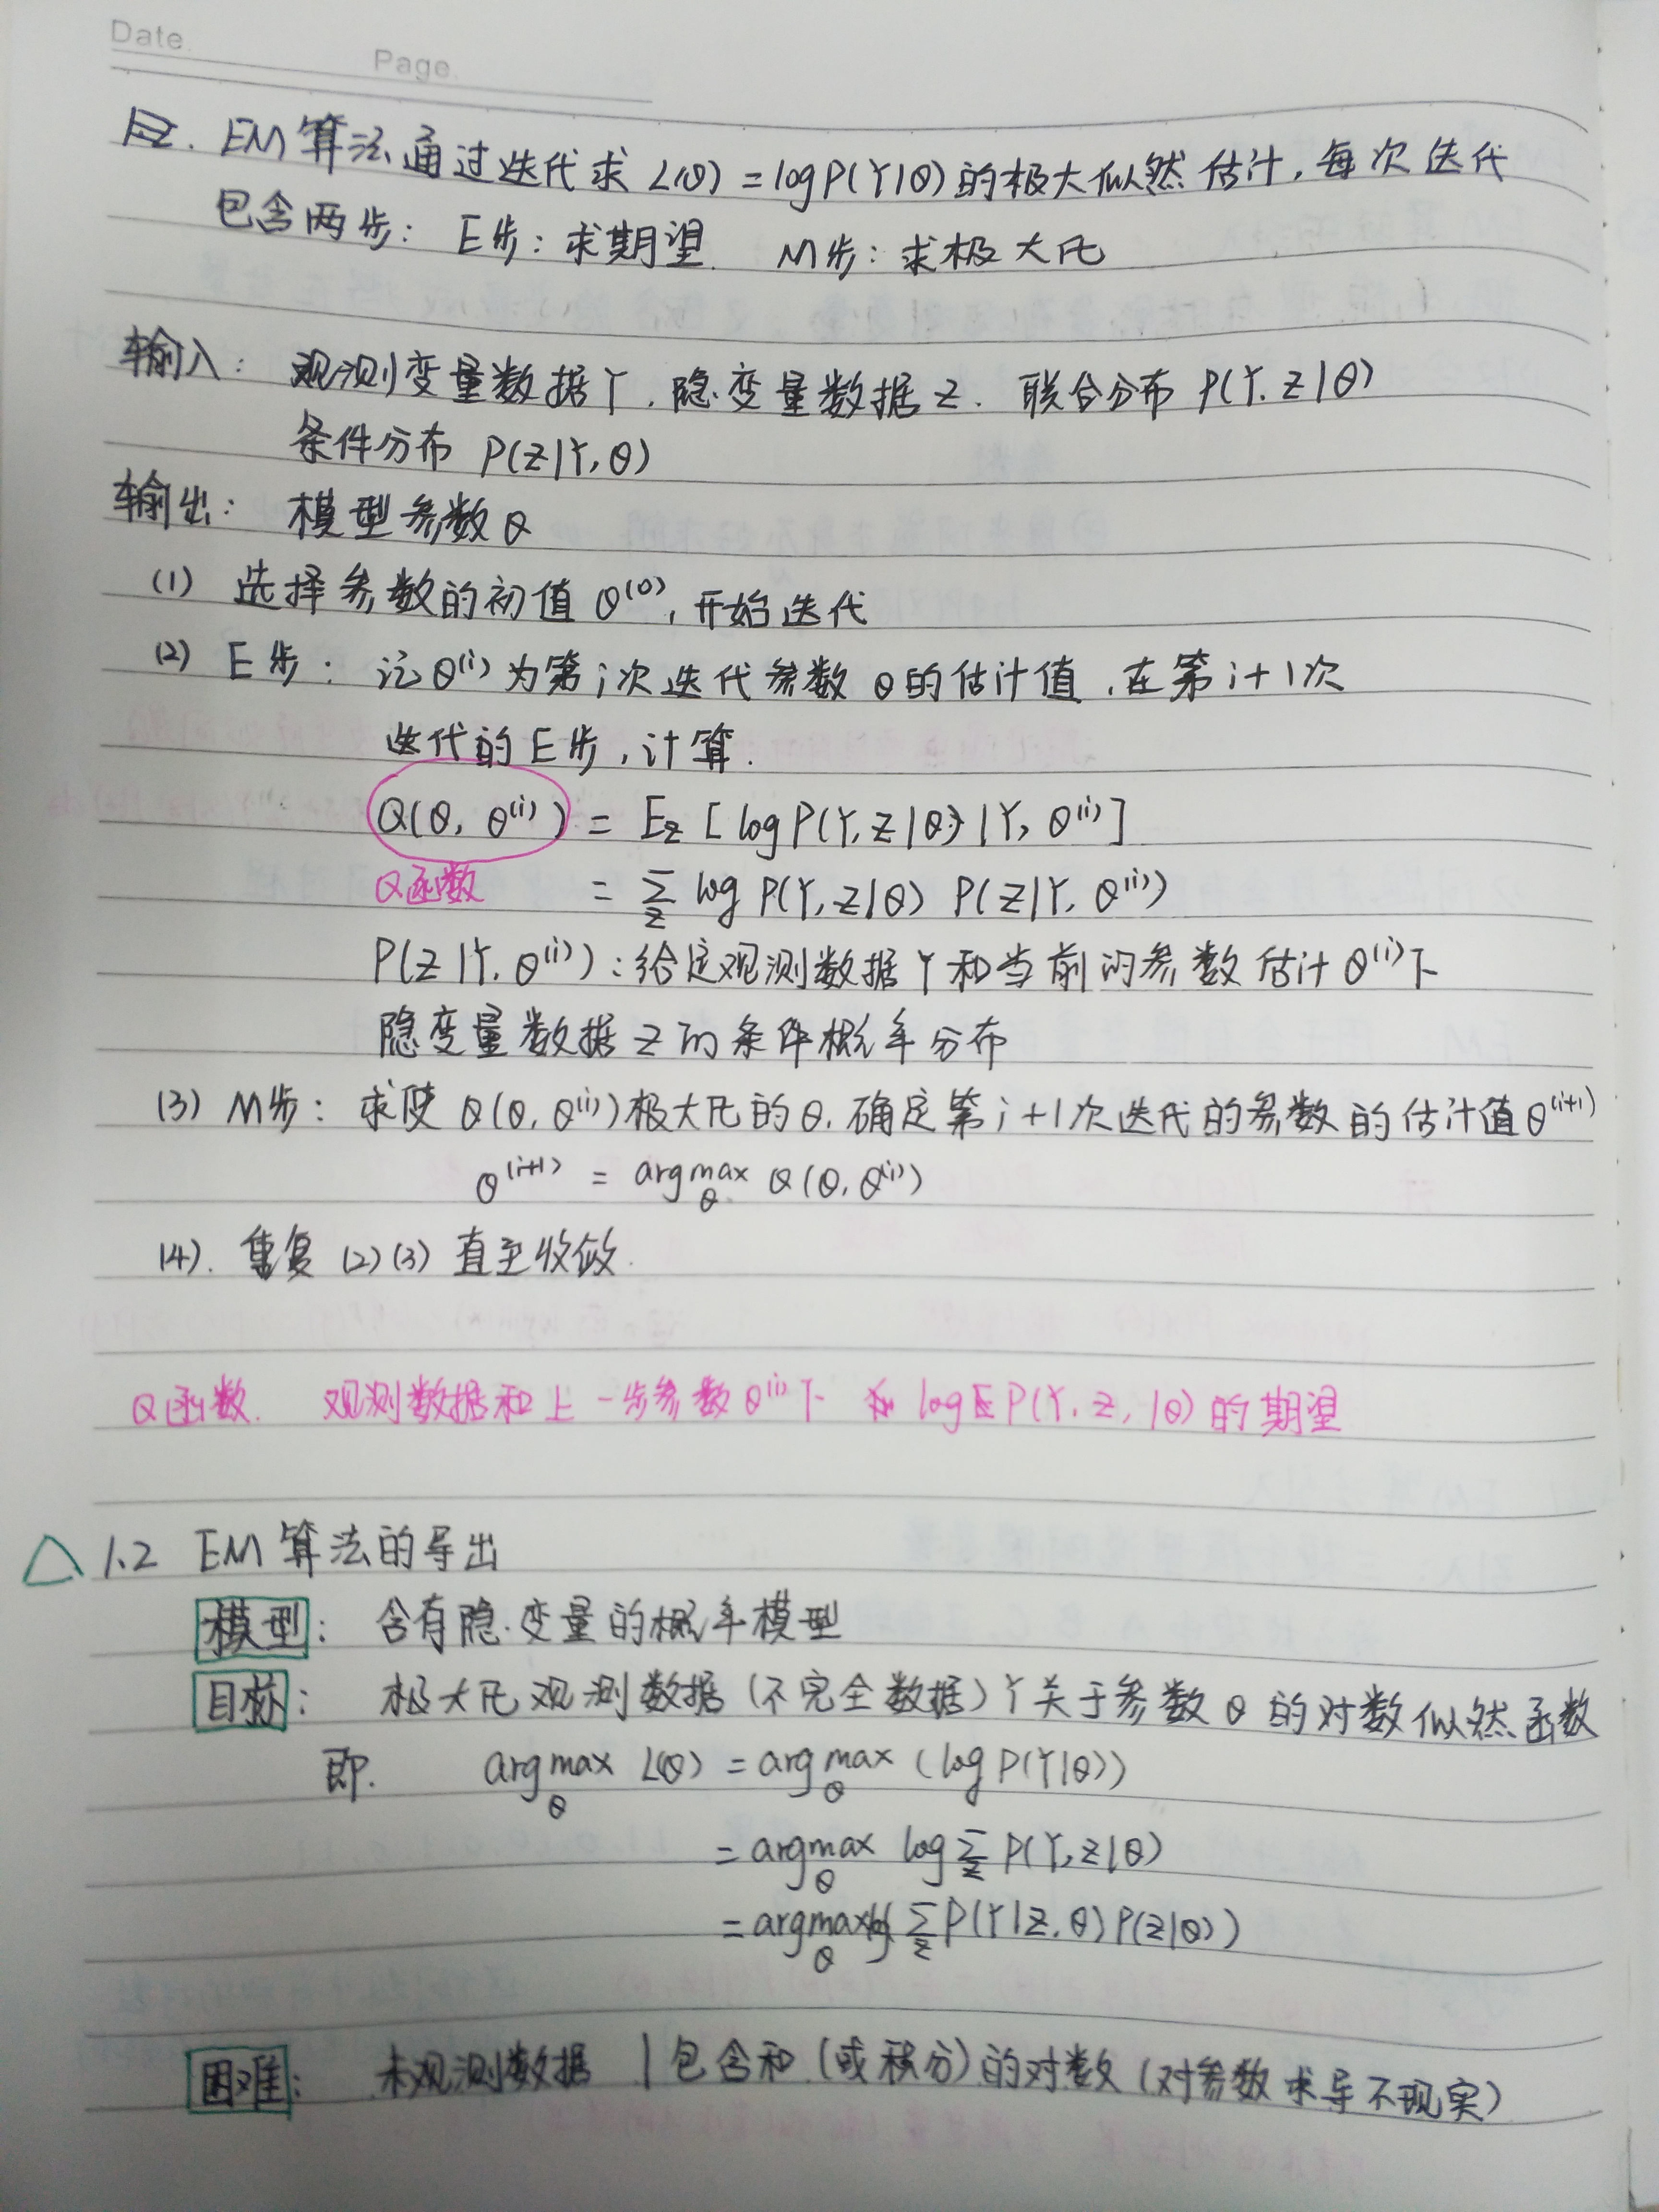 Date.
Page.
EM算法通过迭代求 L(θ) = logP(Y|θ)的极大似然估计, 每次迭代
包含两步: E步: 求期望. M步: 求极大化
输入: 观测变量数据Y. 隐变量数据Z. 联合分布 P(Y, Z|θ)
条件分布 P(Z|Y, θ)
输出: 模型参数θ
(1) 选择参数的初值 θ⁽⁰⁾, 开始迭代
(2) E步: 记θ⁽ⁱ⁾为第i次迭代参数θ的估计值, 在第i+1次
迭代的E步, 计算.
Q(θ, θ⁽ⁱ⁾) = E_Z [log P(Y, Z|θ) | Y, θ⁽ⁱ⁾]
Q函数 = Σ_Z log P(Y, Z|θ) P(Z|Y, θ⁽ⁱ⁾)
P(Z|Y, θ⁽ⁱ⁾): 给定观测数据Y和当前的参数估计θ⁽ⁱ⁾下
隐变量数据Z的条件概率分布
(3) M步: 求使 Q(θ, θ⁽ⁱ⁾)极大化的θ, 确定第i+1次迭代的参数的估计值θ⁽ⁱ⁺¹⁾
θ⁽ⁱ⁺¹⁾ = argmax_θ Q(θ, θ⁽ⁱ⁾)
(4). 重复(2)(3)直至收敛.
Q函数. 观测数据和上一步参数θ⁽ⁱ⁾下 log P(Y, Z, |θ)的期望
△ 1.2 EM算法的导出
模型: 含有隐变量的概率模型
目标: 极大化观测数据(不完全数据)Y关于参数θ的对数似然函数
即. argmax_θ L(θ) = argmax_θ (log P(Y|θ))
= argmax_θ log Σ_Z P(Y, Z|θ)
= argmax_θ log( Σ_Z P(Y|Z, θ) P(Z|θ))
困难: 未观测数据 | 包含和(或积分)的对数(对参数求导不现实)